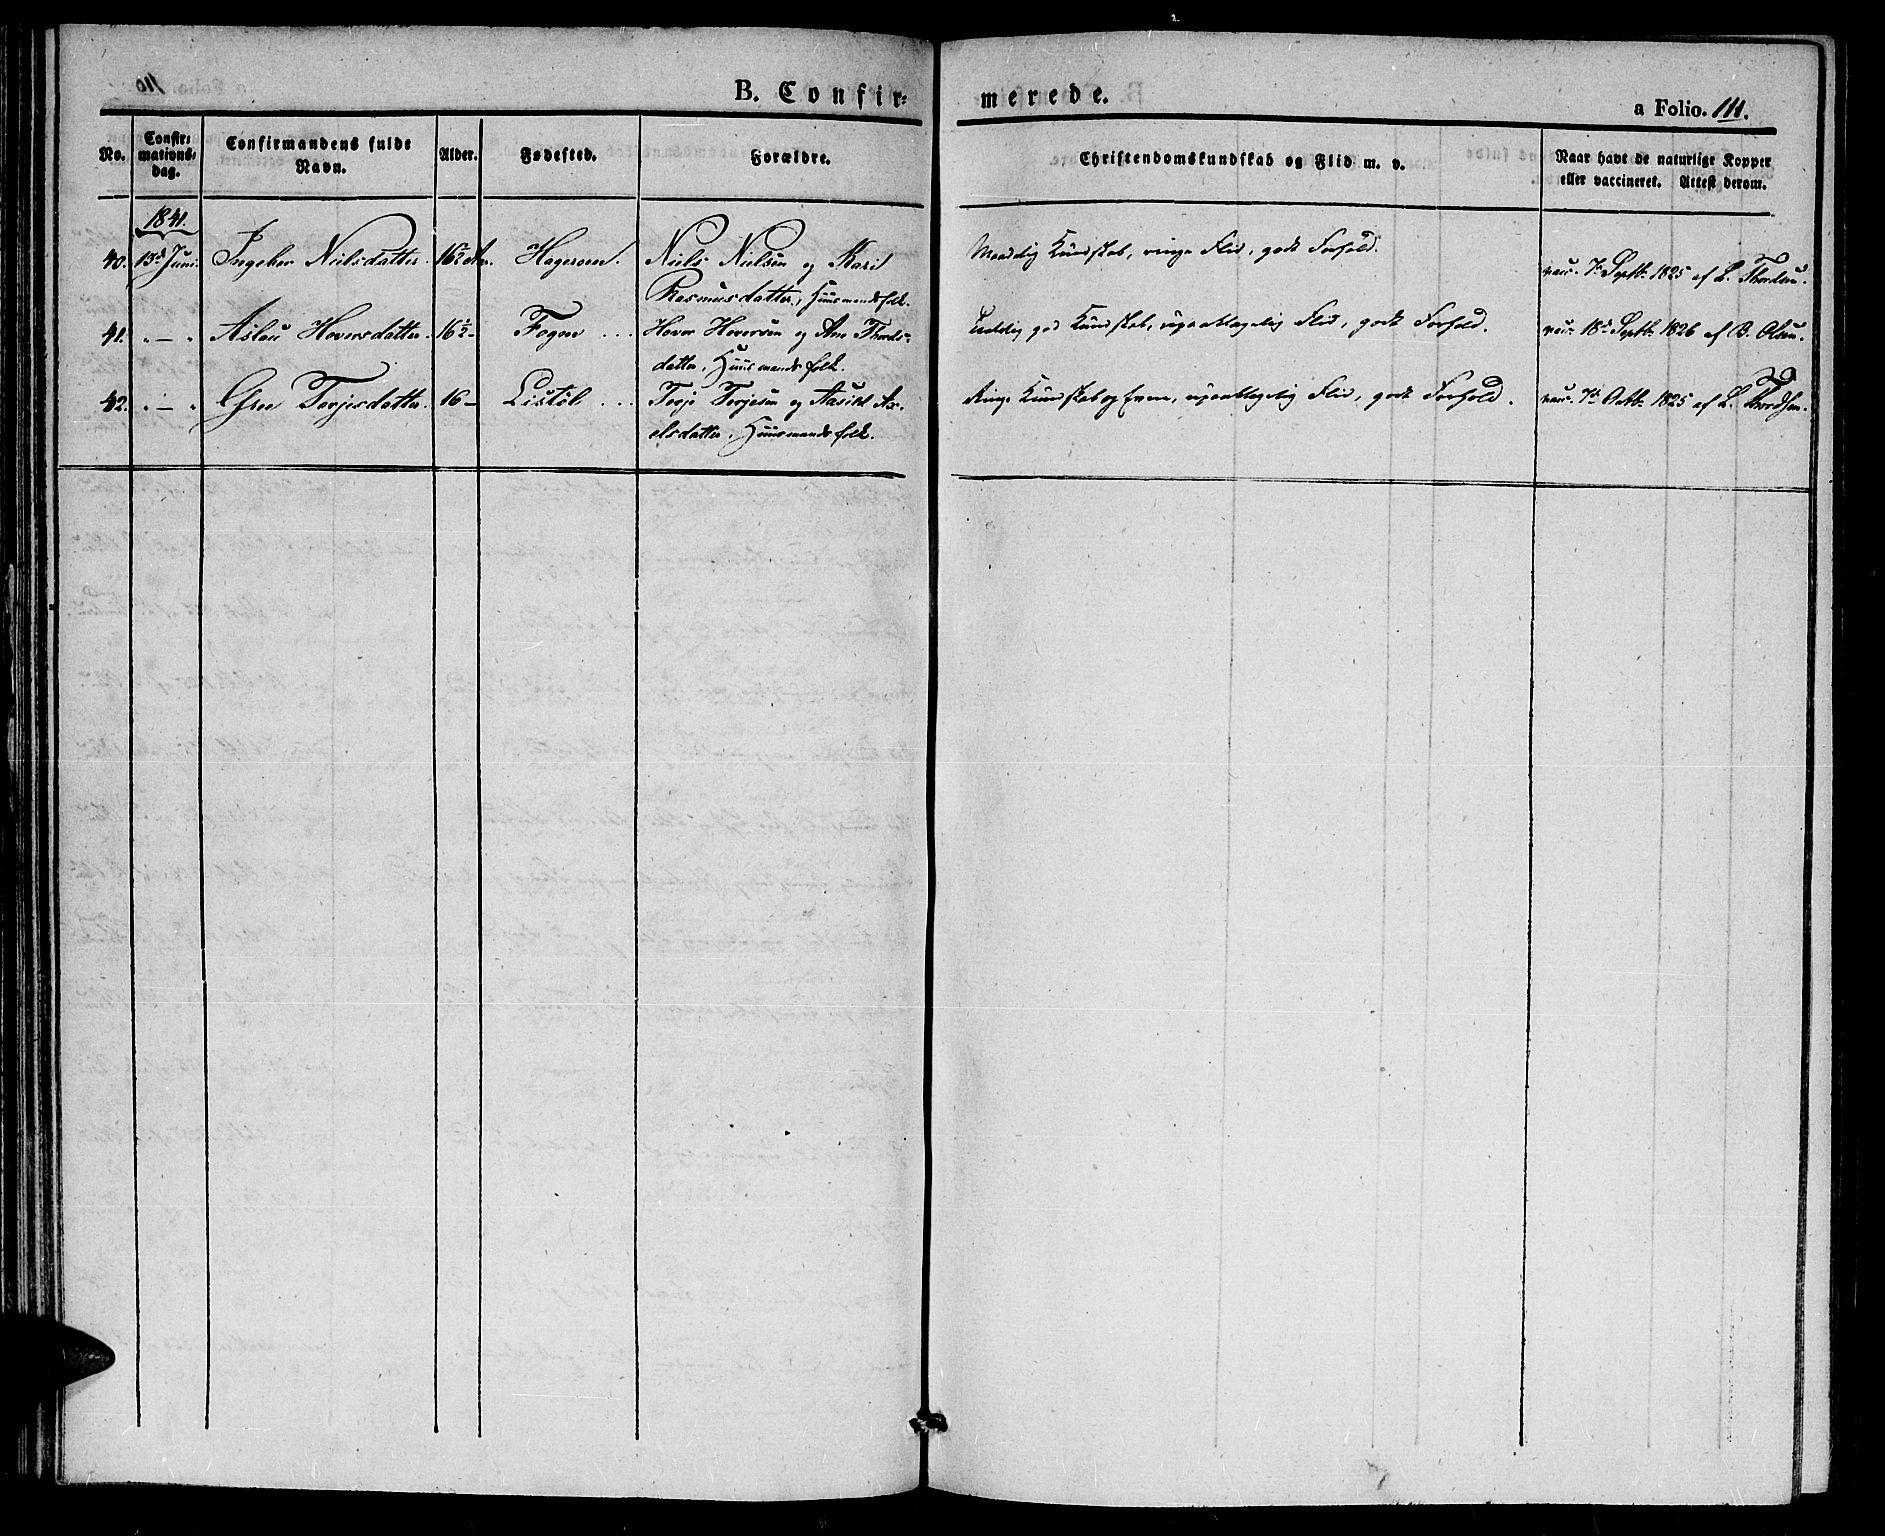 B. Confir=
merede.
a Folio. 111.
No.
Confir=
mations=
dag.
Confirmandens fulde
Navn.
Alder.
Fødested.
Forældre.
Christendomskundskab og Flid m. v.
Naar havt de naturlige Kopper
eller vaccineret. Attest derom.
1841.
40. 13de Juni. Ingebor Nielsdatter. 16½ Aar. Niels Nielsen og Kari
Rasmusdatter, Huusmandsfolk.
Maadelig Kundskab, ringe Flid, godt Forhold.
vacc. 7de Septb. 1825 af L. Thordsen.
41. " — " Aslau Hoversdatter. 16½ — Fogne ... Hover Hoversen og Ane Thords=
datter, Huusmandsfolk.
Temmelig god Kundskab, upaaklagelig Flid, godt Forhold.
vacc. 18de Septb. 1826 af B. Olsen.
42. " — " Gro Terjesdatter. 16 — Listøl ... Terje Terjesen og Aasild Ax=
elsdatter, Huusmandsfolk.
Ringe Kundskab og Evne, upaaklagelig Flid, godt Forhold.
vacc. 7de Octb. 1825 af L. Thordsen.